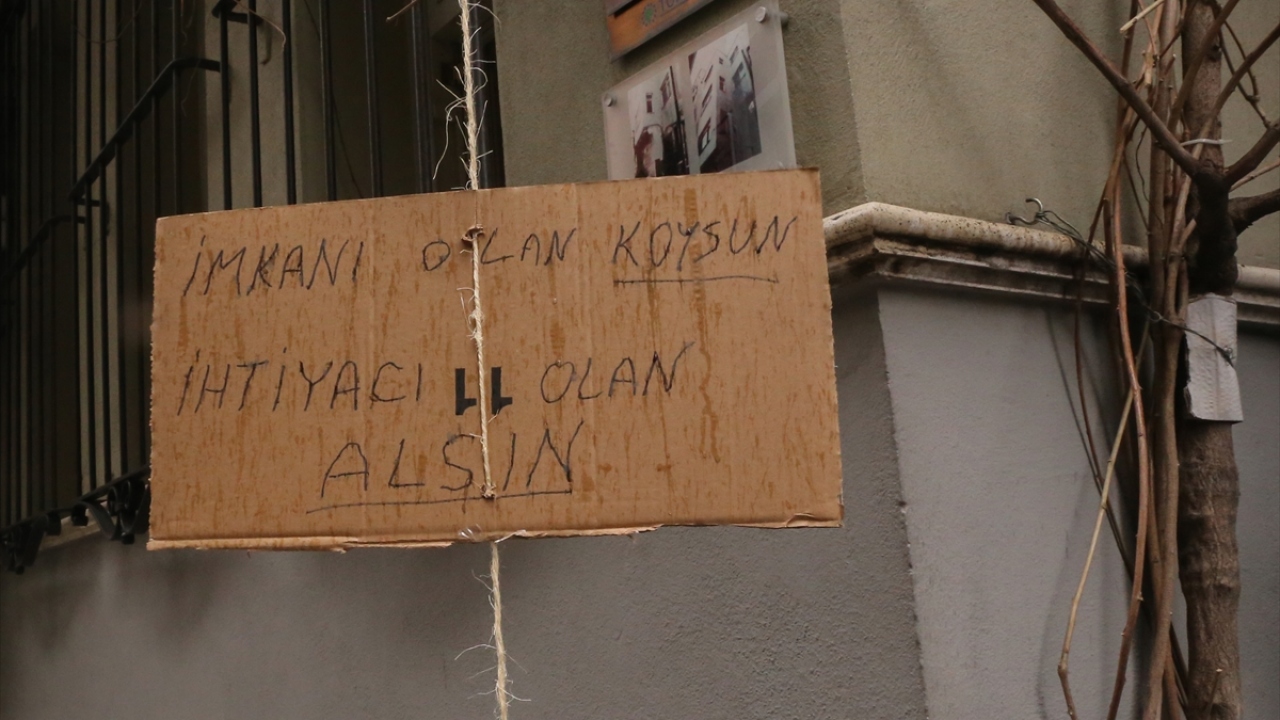 İMKANI OLAN KOYSUN
İHTİYACI OLAN
ALSIN